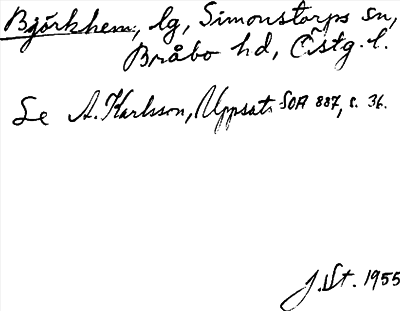 Björkhem, lg, Simonstorps sn,
Bråbo hd, Östg. l.
Se A. Karlsson, Uppsats SOA 887, s. 36.
J. St. 1955